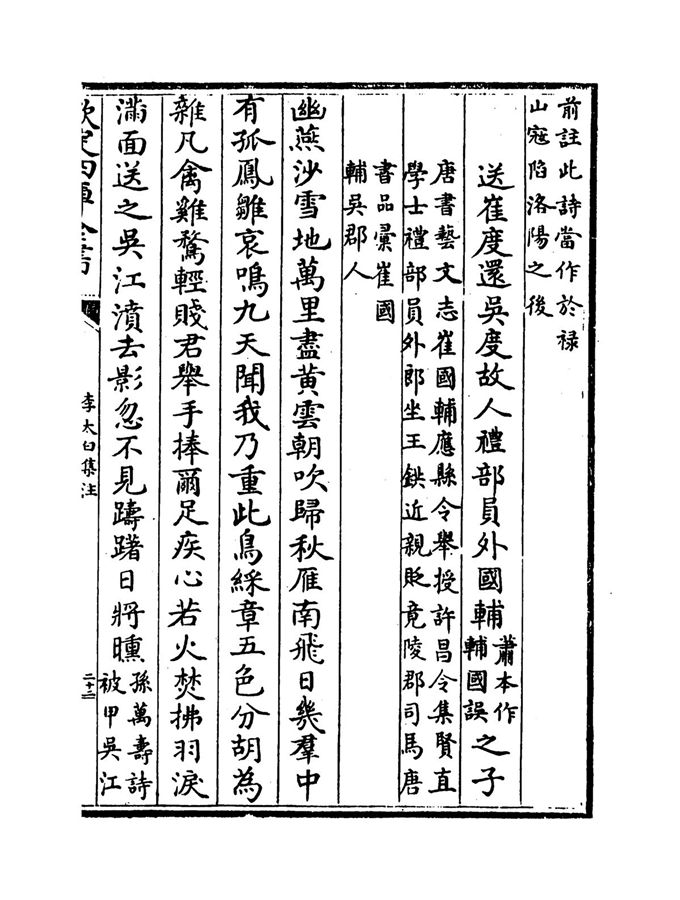 前註此詩當作於禄
山宼陷洛陽之後
送崔度還吳度故人禮部員外國輔
蕭本作
輔國誤
之子
唐書藝文志崔國輔應縣令舉授許昌令集賢直
學士禮部員外郎坐王鉷近親貶竟陵郡司馬唐
書品彙崔國
輔吳郡人
幽燕沙雪地萬里盡黄雲朝吹歸秋雁南飛日幾羣中
有孤鳳雛哀鳴九天聞我乃重此鳥綵章五色分胡為
雜凡禽雞鶩輕賤君舉手捧爾足疾心若火焚拂羽淚
滿面送之吳江濆去影忽不見躊躇日將曛
孫萬壽詩
被甲吳江
欽定四庫全書
李太白集注
二十二